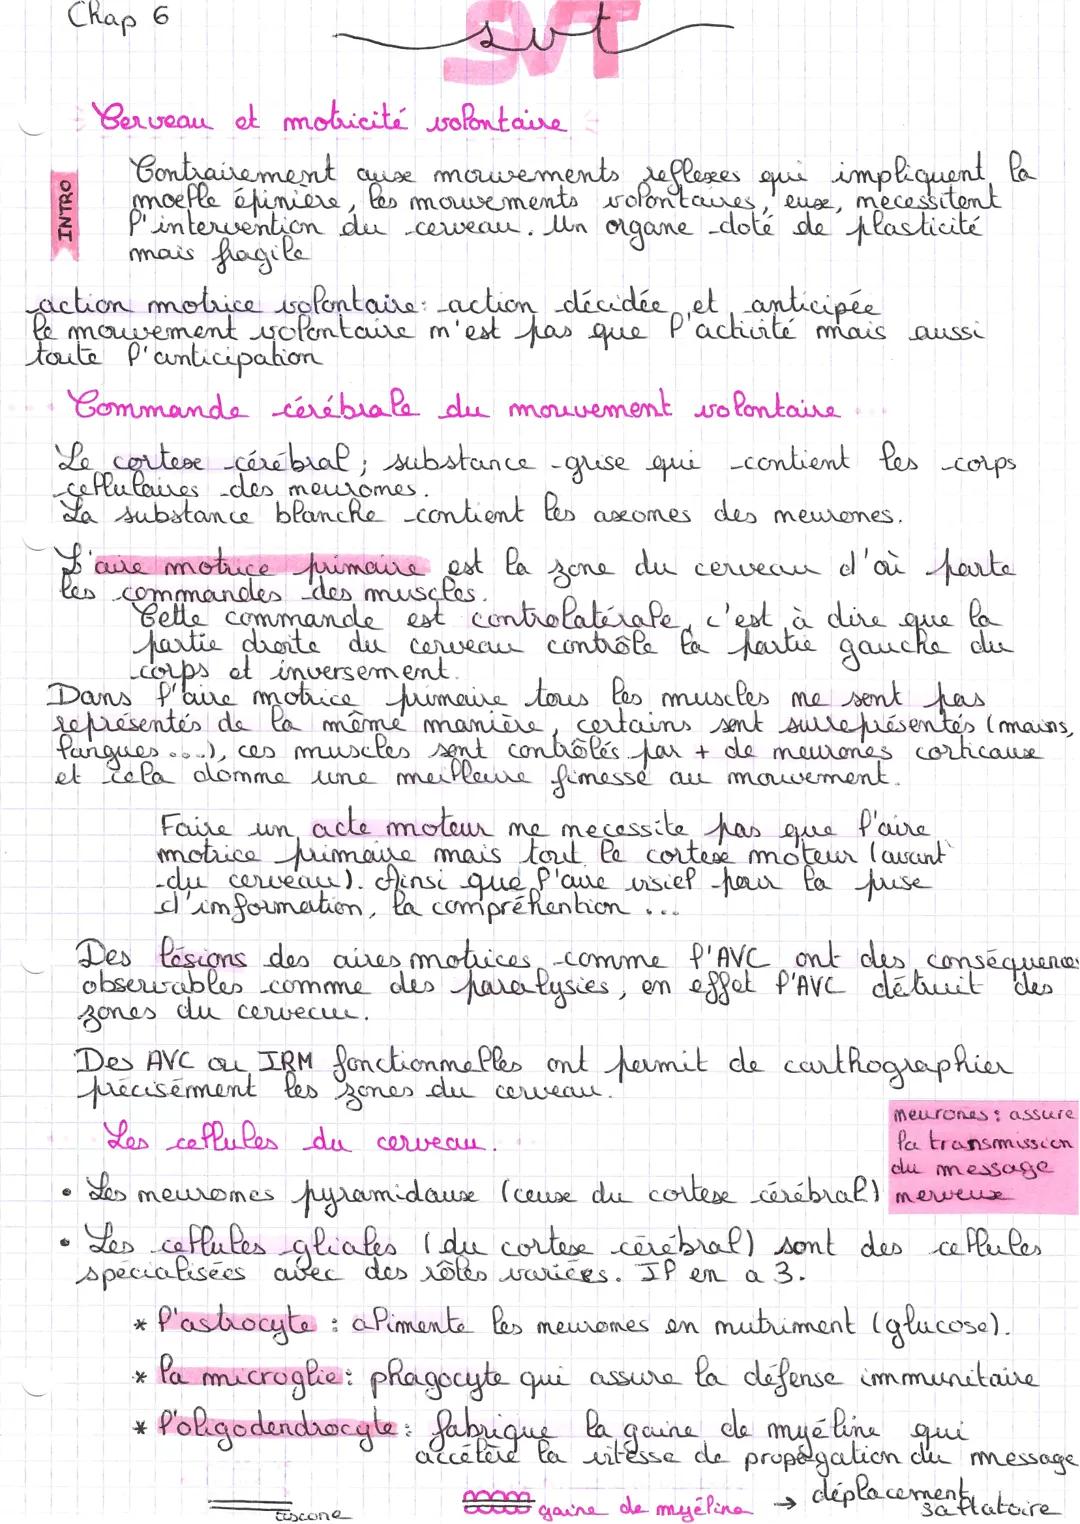 Chap 6
SVT
svt
Cerveau et motricité volontaire
INTRO
Contrairement aux mouvements reflexes qui impliquent la
moelle épinière, les mouvements volontaires, eux, necessitent
l'intervention du cerveau. Un organe doté de plasticité
mais fragile
action motrice volontaire: action décidée et anticipée
le mouvement volontaire n'est pas que l'activité mais aussi
toute l'anticipation
Commande cérébrale du mouvement volontaire
Le cortex cérébral ; substance grise qui contient les corps
cellulaires des neurones.
La substance blanche contient les axones des neurones.
L'aire motrice primaire est la zone du cerveau d'où parte
les commandes des muscles.
Cette commande est controlatérale, c'est à dire que la
partie droite du cerveau contrôle la partie gauche du
corps et inversement.
Dans l'aire motrice primaire tous les muscles ne sont pas
représentés de la même manière, certains sont surreprésentés (mains,
langues ...), ces muscles sont contrôlés par + de neurones corticaux
et cela donne une meilleure finesse au mouvement.
Faire un acte moteur ne necessite pas que l'aire
motrice primaire mais tout le cortex moteur (avant
du cerveau). Ainsi que l'aire visiel pour la prise
d'information, la compréhention ...
Des lésions des aires motrices comme l'AVC ont des conséquences
observables comme des paralysies, en effet l'AVC détruit des
zones du cerveau.
Des AVC ou IRM fonctionnelles ont permit de carthographier
précisément les zones du cerveau.
Les cellules du cerveau.
neurones : assure
la transmission
du message
nerveux
• Les neurones pyramidaux (ceux du cortex cérébral)
• Les cellules gliales (du cortex cérébral) sont des cellules
spécialisées avec des rôles variées. Il en a 3.
* l'astrocyte : alimente les neurones en nutriment (glucose).
* la microglie : phagocyte qui assure la défense immunitaire
* l'oligodendrocyte : fabrique la gaine de myéline qui
accélère la vitesse de propagation du message
axone
gaine de myéline → déplacement
saltatoire